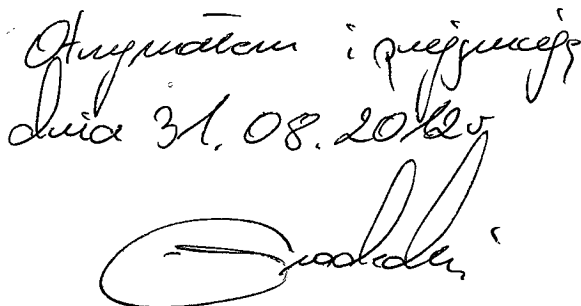 Otrzymałem i przyjmuję
dnia 31.08.2012r